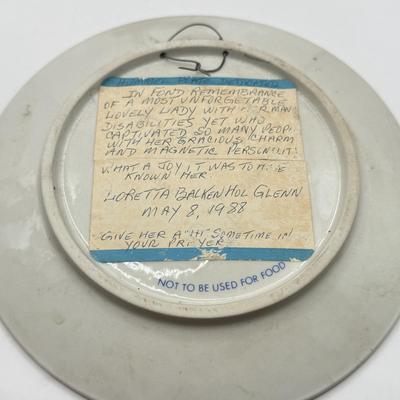 HUMMEL PLATE DEDICATED
IN FOND REMEMBRANCE
OF A MOST UNFORGETABLE
LOVELY LADY WITH HER MANY
DISABILITIES YET WHO
CAPTIVATED SO MANY PEOPL
WITH HER GRACIOUS CHARM
AND MAGNETIC PERSONALIT
WHAT A JOY IT WAS TO HAVE
KNOWN HER.
LORETTA BALKENHOL GLENN
MAY 8, 1988
GIVE HER A "HI" SOMETIME IN
YOUR PRAYER
NOT TO BE USED FOR FOOD